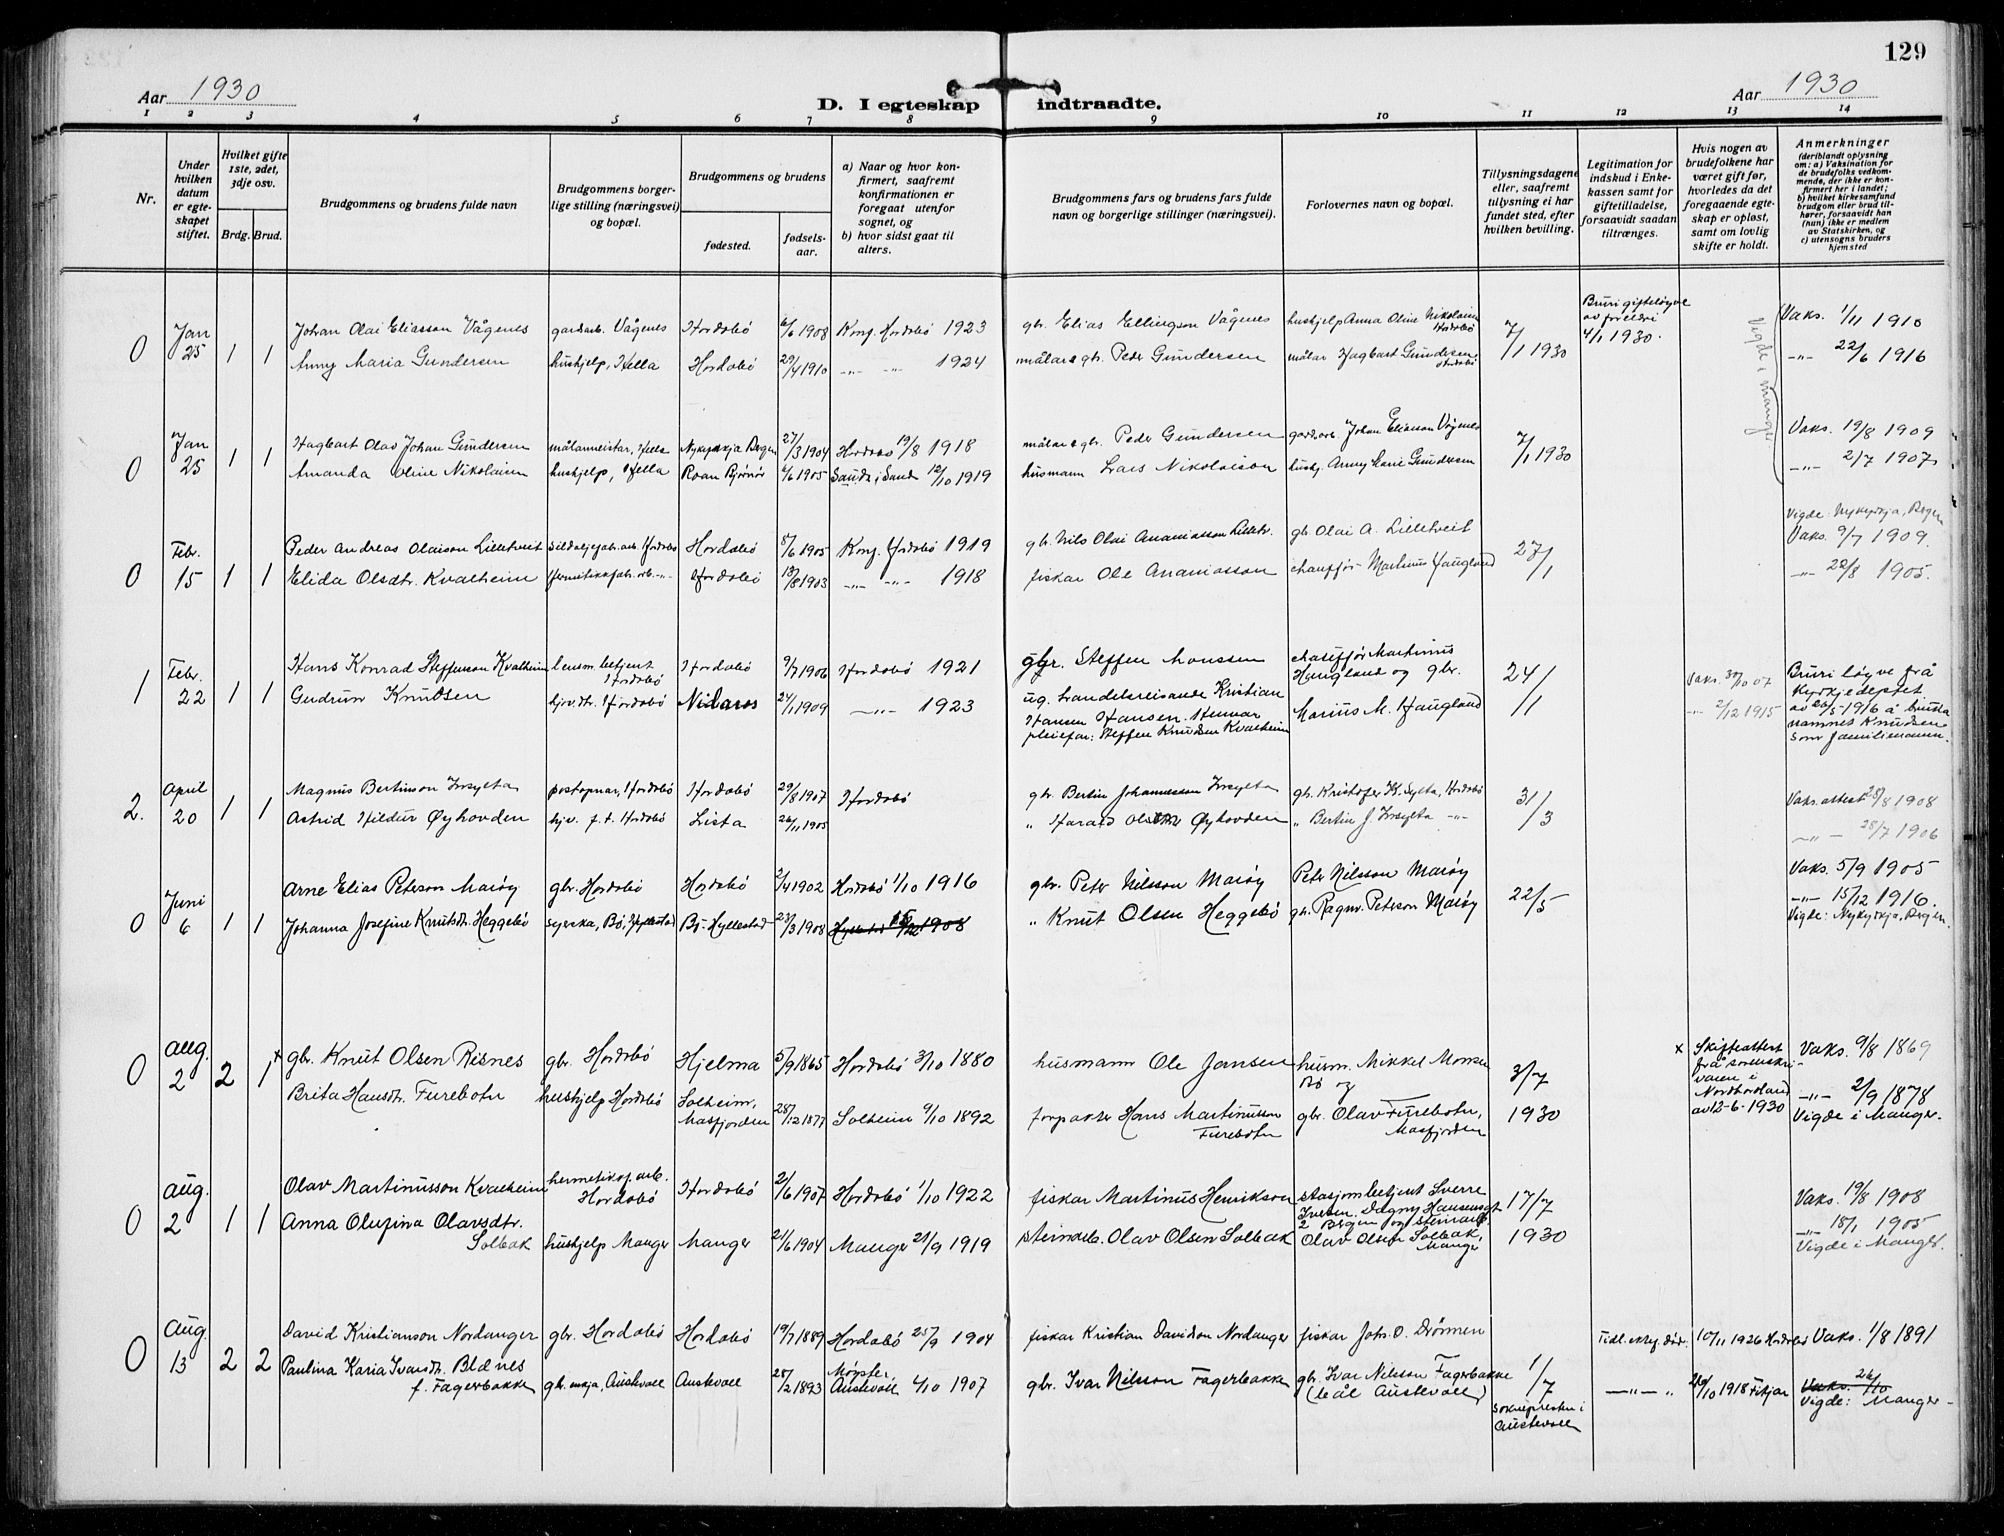 129
Aar 1930
D. I egteskap indtraadte.
Aar 1930
1 2 3 4 5 6 7 8 9 10 11 12 13 14
Nr.
Under hvilken datum er egteskapet stiftet.
Hvilket gifte 1ste, 2det, 3dje osv.
Brdg. Brud.
Brudgommens og brudens fulde navn
Brudgommens borgerlige stilling (næringsvei) og bopæl.
Brudgommens og brudens
fødested.
fødselsaar.
a) Naar og hvor konfirmert, saafremt konfirmationen er foregaat utenfor sognet, og
b) hvor sidst gaat til alters.
Brudgommens fars og brudens fars fulde navn og borgerlige stillinger (næringsvei).
Forlovernes navn og bopæl.
Tillysningsdagene eller, saafremt tillysning ei har fundet sted, efter hvilken bevilling.
Legitimation for indskud i Enkekassen samt for giftetilladelse, forsaavidt saadan tiltrænges.
Hvis nogen av brudefolkene har været gift før, hvorledes da det foregaaende egteskap er opløst, samt om lovlig skifte er holdt.
Anmerkninger (deriblandt oplysning om: a) Vaksination for de brudefolks vedkommende, der ikke er konfirmert her i landet; b) hvilket kirkesamfund brudgom eller brud tilhører, forsaavidt han (hun) ikke er medlem av Statskirken, og c) utensogns bruders hjemsted
0 Jan 25 1 1 Johan Olai Eliasson Vågenes gardarb. Vågenes Hordabø 6/6 1908 Konf. Hordabø 1923 gbr. Elias Ellingson Vågenes hushjelp Anna Oline Nikolaisen Hordabø 7/1 1930 Bruri gifteløyve av foreldri 4/1 1930. Vaks. 1/11 1910
Anny Maria Gundersen hushjelp, Hella Hordabø 29/4 1910 -"- -"- 1924 målar & gbr. Peder Gundersen målar Hagbart Gundersen Hordabø -"- 22/6 1916
Vigde i Manger
0 Jan 25 1 1 Hagbart Olav Johan Gundersen målarmeistar, Hella Nykyrkja Bergen 27/3 1904 Hordabø 19/8 1918 målar & gbr. Peder Gundersen gardarb. Johan Eliasson Vågenes 7/1 1930 Vaks. 19/8 1909
Amanda Oline Nikolaisen hushjelp, Hella Roan Bjørnør 6/6 1905 Sauda i Sauda 12/10 1919 husmann Lars Nikolaison hushj. Anny Marie Gundersen -"- 2/7 1907
Vigde: Nykyrkja, Bergen
0 Febr. 15 1 1 Peder Andreas Olaison Lilletveit sildoljefabr.arb. Hordabø Hordabø 8/6 1905 Konf. Hordabø 1919 gbr. Nils Olai Ananiasson Lilletv. gbr. Olai A. Lilletveit 27/1 Vaks. 9/7 1909.
Elida Olsdtr. Kvalheim hermetikkfabr. arb. -"- Hordabø 13/8 1903 -"- -"- 1918 fiskar Ole Ananiasson chaufför Martinus Haugland -"- 22/8 1905.
1 Febr. 22 1 1 Hans Konrad Steffensen Kvalheim lensm.betjent Hordabø Hordabø 9/7 1906 Hordabø 1921 gbr. Steffen Monssen chaufför Martinus Haugland og gbr. 24/1 Vaks. 30/10 07 Bruri løyve frå Kyrkjedeptet
Gudrun Knudsen hjv.dtr. Hordabø Nidaros 24/1 1909 -"- 1923 ug. handelsreisande Kristian Hansen Hansen. pleiefar: Steffen Knudsen Kvalheim Marius M. Haugland -"- 2/12 1915 av 26/5-1916 å bruka namnet Knudsen som familienamn.
2. April 20 1 1 Magnus Bertinson Innsylta postopnar, Hordabø Hordabø 29/8 1907 Hordabø gbr. Bertin Johannesson Innsylta gbr. Kristofer K. Sylta, Hordabø 31/3 Vaks.attest 25/8 1908
Astrid Hildur Øyhovden hjv. p.t. Hordabø Lista 26/11 1905 " Harald Olsen Øyhovden " Bertin J. Innsylta -"- -"- 28/7 1906
0 Juni 6 1 1 Arne Elias Peterson Marøy gbr. Hordabø Hordabø 2/4 1902 Hordabø 1/10 1916 gbr. Peter Nilsson Marøy Peter Nilsson Marøy 22/5 Vaks. 5/9 1905
Johanna Josefine Knutsdtr. Heggebø syerska, Bø, Hyllestad Bø-Hyllestad 23/3 1908 1908 " Knut Olsen Heggebø gbr. Ragnv. Peterson Marøy -"- 15/12 1916.
Vigde: Nykyrkja, Bergen.
0 Aug. 2 2 1 gbr. Knut Olsen Risnes gbr. Hordabø Hjelma 5/9 1865 Hordabø 3/10 1880 husmann Ole Jansen husm. Mikkel Monsen Bø og 3/7 x Skifteattest frå sorenskrivaren i Nordhordland av 12-6-1930 Vaks. 9/8 1869
Brita Hansdtr. Furebotn hushjelp Hordabø Solheim, Masfjorden 28/12 1877 Solheim 9/10 1892 forpakter Hans Martinusson Furebotn gbr. Olav Furebotn, Masfjorden 1930 -"- 2/9 1878
Vigde i Manger.
0 Aug. 2 1 1 Olav Martinusson Kvalheim hermetikkf.arb. Hordabø Hordabø 2/6 1907 Hordabø 1/10 1922 fiskar Martinus Henrikson stasjonsbetjent Sverre Iversen. Dagny Hansensgt 2 Bergen og steinarb. 17/7 Vaks. 19/8 1908
Anna Olufina Olavsdtr. Solbak hushjelp Manger Manger 21/6 1904 Manger 21/9 1919 steinarb. Olav Olsen Solbak Olav Olsen Solbak, Manger 1930 -"- 18/1 1905
Vigde i Manger.
0 Aug. 13 2 2 David Kristianson Nordanger gbr. Hordabø Hordabø 19/7 1889 Hordabø 25/9 1904 fiskar Kristian Davidson Nordanger fiskar Johs. O. Drönnen 1/7 Tidl. ektef. död. 10/11 1926 Hordabø Vaks. 1/8 1891
Paulina Karia Ivarsdt. Blænes f. Fagerbakke gbr.enkja, Austevoll Austevoll 28/2 1893 Møgster, Austevoll 4/10 1907 gbr. Ivar Nilsson Fagerbakke gbr. Ivar Nilsson Fagerbakke (båe Austevoll) soknepresten i Austevoll -"- " 20/10 1918 Fitjar Vaks. 26/10
Vigde: Manger-